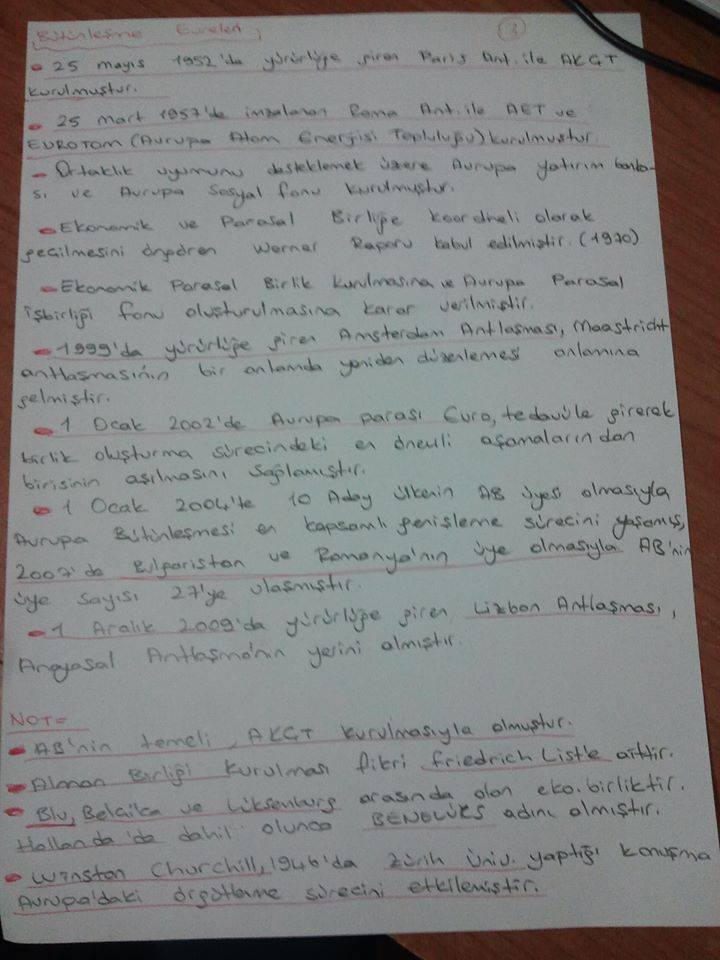 Bütünleşme Evreleri; 3
• 25 mayıs 1952'de yürürlüğe giren Paris Ant. ile AKÇT
kurulmuştur.
• 25 mart 1957'de imzalanan Roma Ant. ile AET ve
EUROTOM (Avrupa Atom Energisi Topluluğu) kurulmuştur.
• Ortaklık uyumunu desteklemek üzere Avrupa yatırım banka-
sı ve Avrupa Sosyal fonu kurulmuştur.
• Ekonomik ve Parasal Birliğe koordneli olarak
geçilmesini öngören Werner Raporu kabul edilmiştir. (1970)
• Ekonomik Parasal Birlik kurulmasına ve Avrupa Parasal
işbirliği fonu oluşturulmasına karar verilmiştir.
• 1999'da yürürlüğe giren Amsterdam Antlaşması, Maastricht
antlaşmasının bir anlamda yeniden düzenlemesi anlamına
gelmiştir.
• 1 Ocak 2002'de Avrupa parası Euro, tedavüle girerek
birlik oluşturma sürecindeki en önemli aşamalarından
birisinin aşılmasını sağlamıştır.
• 1 Ocak 2004'te 10 Aday ülkenin AB üyesi olmasıyla
Avrupa Bütünleşmesi en kapsamlı genişleme sürecini yaşamış,
2007'de Bulgaristan ve Romanya'nın üye olmasıyla AB'nin
üye sayısı 27'ye ulaşmıştır.
• 1 Aralık 2009'da yürürlüğe giren Lizbon Antlaşması,
Anayasal Antlaşma'nın yerini almıştır.
NOT=
• AB'nin temeli, AKÇT kurulmasıyla olmuştur.
• Alman Birliği kurulması fikri Friedrich List'e aittir.
• Blu, Belçika ve Lüksenburg arasında olan eko. birliktir.
Hollanda'da dahil olunca BENELÜKS adını almıştır.
• Winston Churchill, 1946'da zürih üniv. yaptığı konuşma
Avrupa'daki örgütleme sürecini etkilemiştir.